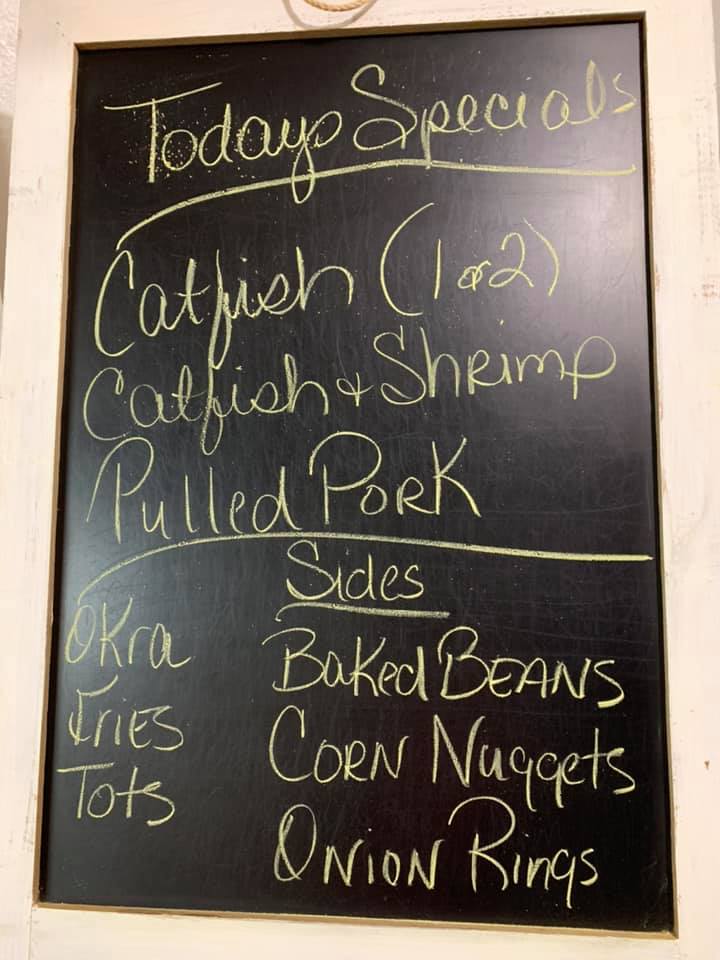 Todays Specials
Catfish (1 or 2)
Catfish + Shrimp
Pulled Pork
Sides
Okra
Fries
Tots
Baked Beans
Corn Nuggets
Onion Rings